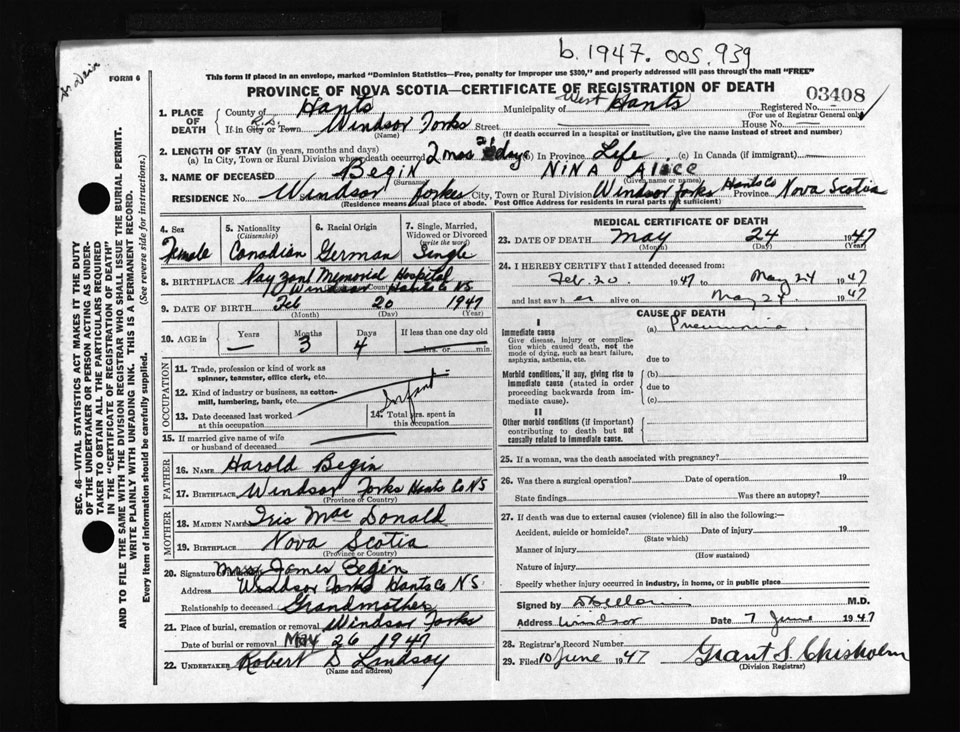 b. 1947. 005.939
FORM 6
This form if placed in an envelope, marked "Dominion Statistics—Free, penalty for improper use $300," and properly addressed will pass through the mail "FREE"
PROVINCE OF NOVA SCOTIA—CERTIFICATE OF REGISTRATION OF DEATH
03408
1. PLACE OF DEATH
County of Hants Municipality of West Hants Registered No.
(For use of Registrar General only)
If in City or Town Windsor Forks Street House No.
(Name) (If death occurred in a hospital or institution, give the name instead of street and number)
2. LENGTH OF STAY (in years, months and days)
(a) In City, Town or Rural Division where death occurred 2 mos days (b) In Province Life (c) In Canada (if immigrant)
3. NAME OF DECEASED Begin Nina Alice
(Surname) (Given name or names)
RESIDENCE No. Windsor Forks City, Town or Rural Division Windsor Forks Hants Co Province Nova Scotia
(Residence means usual place of abode. Post Office Address for residents in rural parts not sufficient)
4. Sex Female
5. Nationality (Citizenship) Canadian
6. Racial Origin German
7. Single, Married, Widowed or Divorced (write the word) Single
8. BIRTHPLACE Payzant Memorial Hospital
Windsor Hants Co NS
9. DATE OF BIRTH Feb 20 1947
(Month) (Day) (Year)
10. AGE in Years Months 3 Days 4 If less than one day old hrs. or min.
OCCUPATION
11. Trade, profession or kind of work as spinner, teamster, office clerk, etc.
12. Kind of industry or business, as cotton-mill, lumbering, bank, etc.
Infant
13. Date deceased last worked at this occupation
14. Total yrs. spent in this occupation
15. If married give name of wife or husband of deceased
FATHER
16. NAME Harold Begin
17. BIRTHPLACE Windsor Forks Hants Co NS
(Province or Country)
MOTHER
18. MAIDEN NAME Iris MacDonald
19. BIRTHPLACE Nova Scotia
(Province or Country)
20. Signature of informant Mrs James Begin
Address Windsor Forks Hants Co NS
Relationship to deceased Grandmother
21. Place of burial, cremation or removal Windsor Forks
Date of burial or removal May 26 1947
22. UNDERTAKER Robert D Lindsay
(Name and address)
MEDICAL CERTIFICATE OF DEATH
23. DATE OF DEATH May 24 1947
(Month) (Day) (Year)
24. I HEREBY CERTIFY that I attended deceased from:
Feb. 20. 1947 to May 24 1947
and last saw h er alive on May 24. 1947
CAUSE OF DEATH
I
Immediate cause
Give disease, injury or complication which caused death, not the mode of dying, such as heart failure, asphyxia, asthenia, etc.
(a) Pneumonia
due to
Morbid conditions, if any, giving rise to immediate cause (stated in order proceeding backwards from immediate cause).
(b)
due to
(c)
II
Other morbid conditions (if important) contributing to death but not causally related to immediate cause.
25. If a woman, was the death associated with pregnancy?
26. Was there a surgical operation? Date of operation 19
State findings Was there an autopsy?
27. If death was due to external causes (violence) fill in also the following:—
Accident, suicide or homicide? Date of injury 19
(State which)
Manner of injury
(How sustained)
Nature of injury
Specify whether injury occurred in industry, in home, or in public place
Signed by M.D.
Address Windsor Date 7 June 1947
28. Registrar's Record Number
29. Filed 10 June 1947 Grant S. Chisholm
(Division Registrar)
SEC. 46—VITAL STATISTICS ACT MAKES IT THE DUTY
OF THE UNDERTAKER OR PERSON ACTING AS UNDER-
TAKER TO OBTAIN ALL THE PARTICULARS REQUIRED
IN THE "CERTIFICATE OF REGISTRATION OF DEATH"
AND TO FILE THE SAME WITH THE DIVISION REGISTRAR WHO SHALL ISSUE THE BURIAL PERMIT.
WRITE PLAINLY WITH UNFADING INK. THIS IS A PERMANENT RECORD.
Every item of information should be carefully supplied. (See reverse side for instructions.)